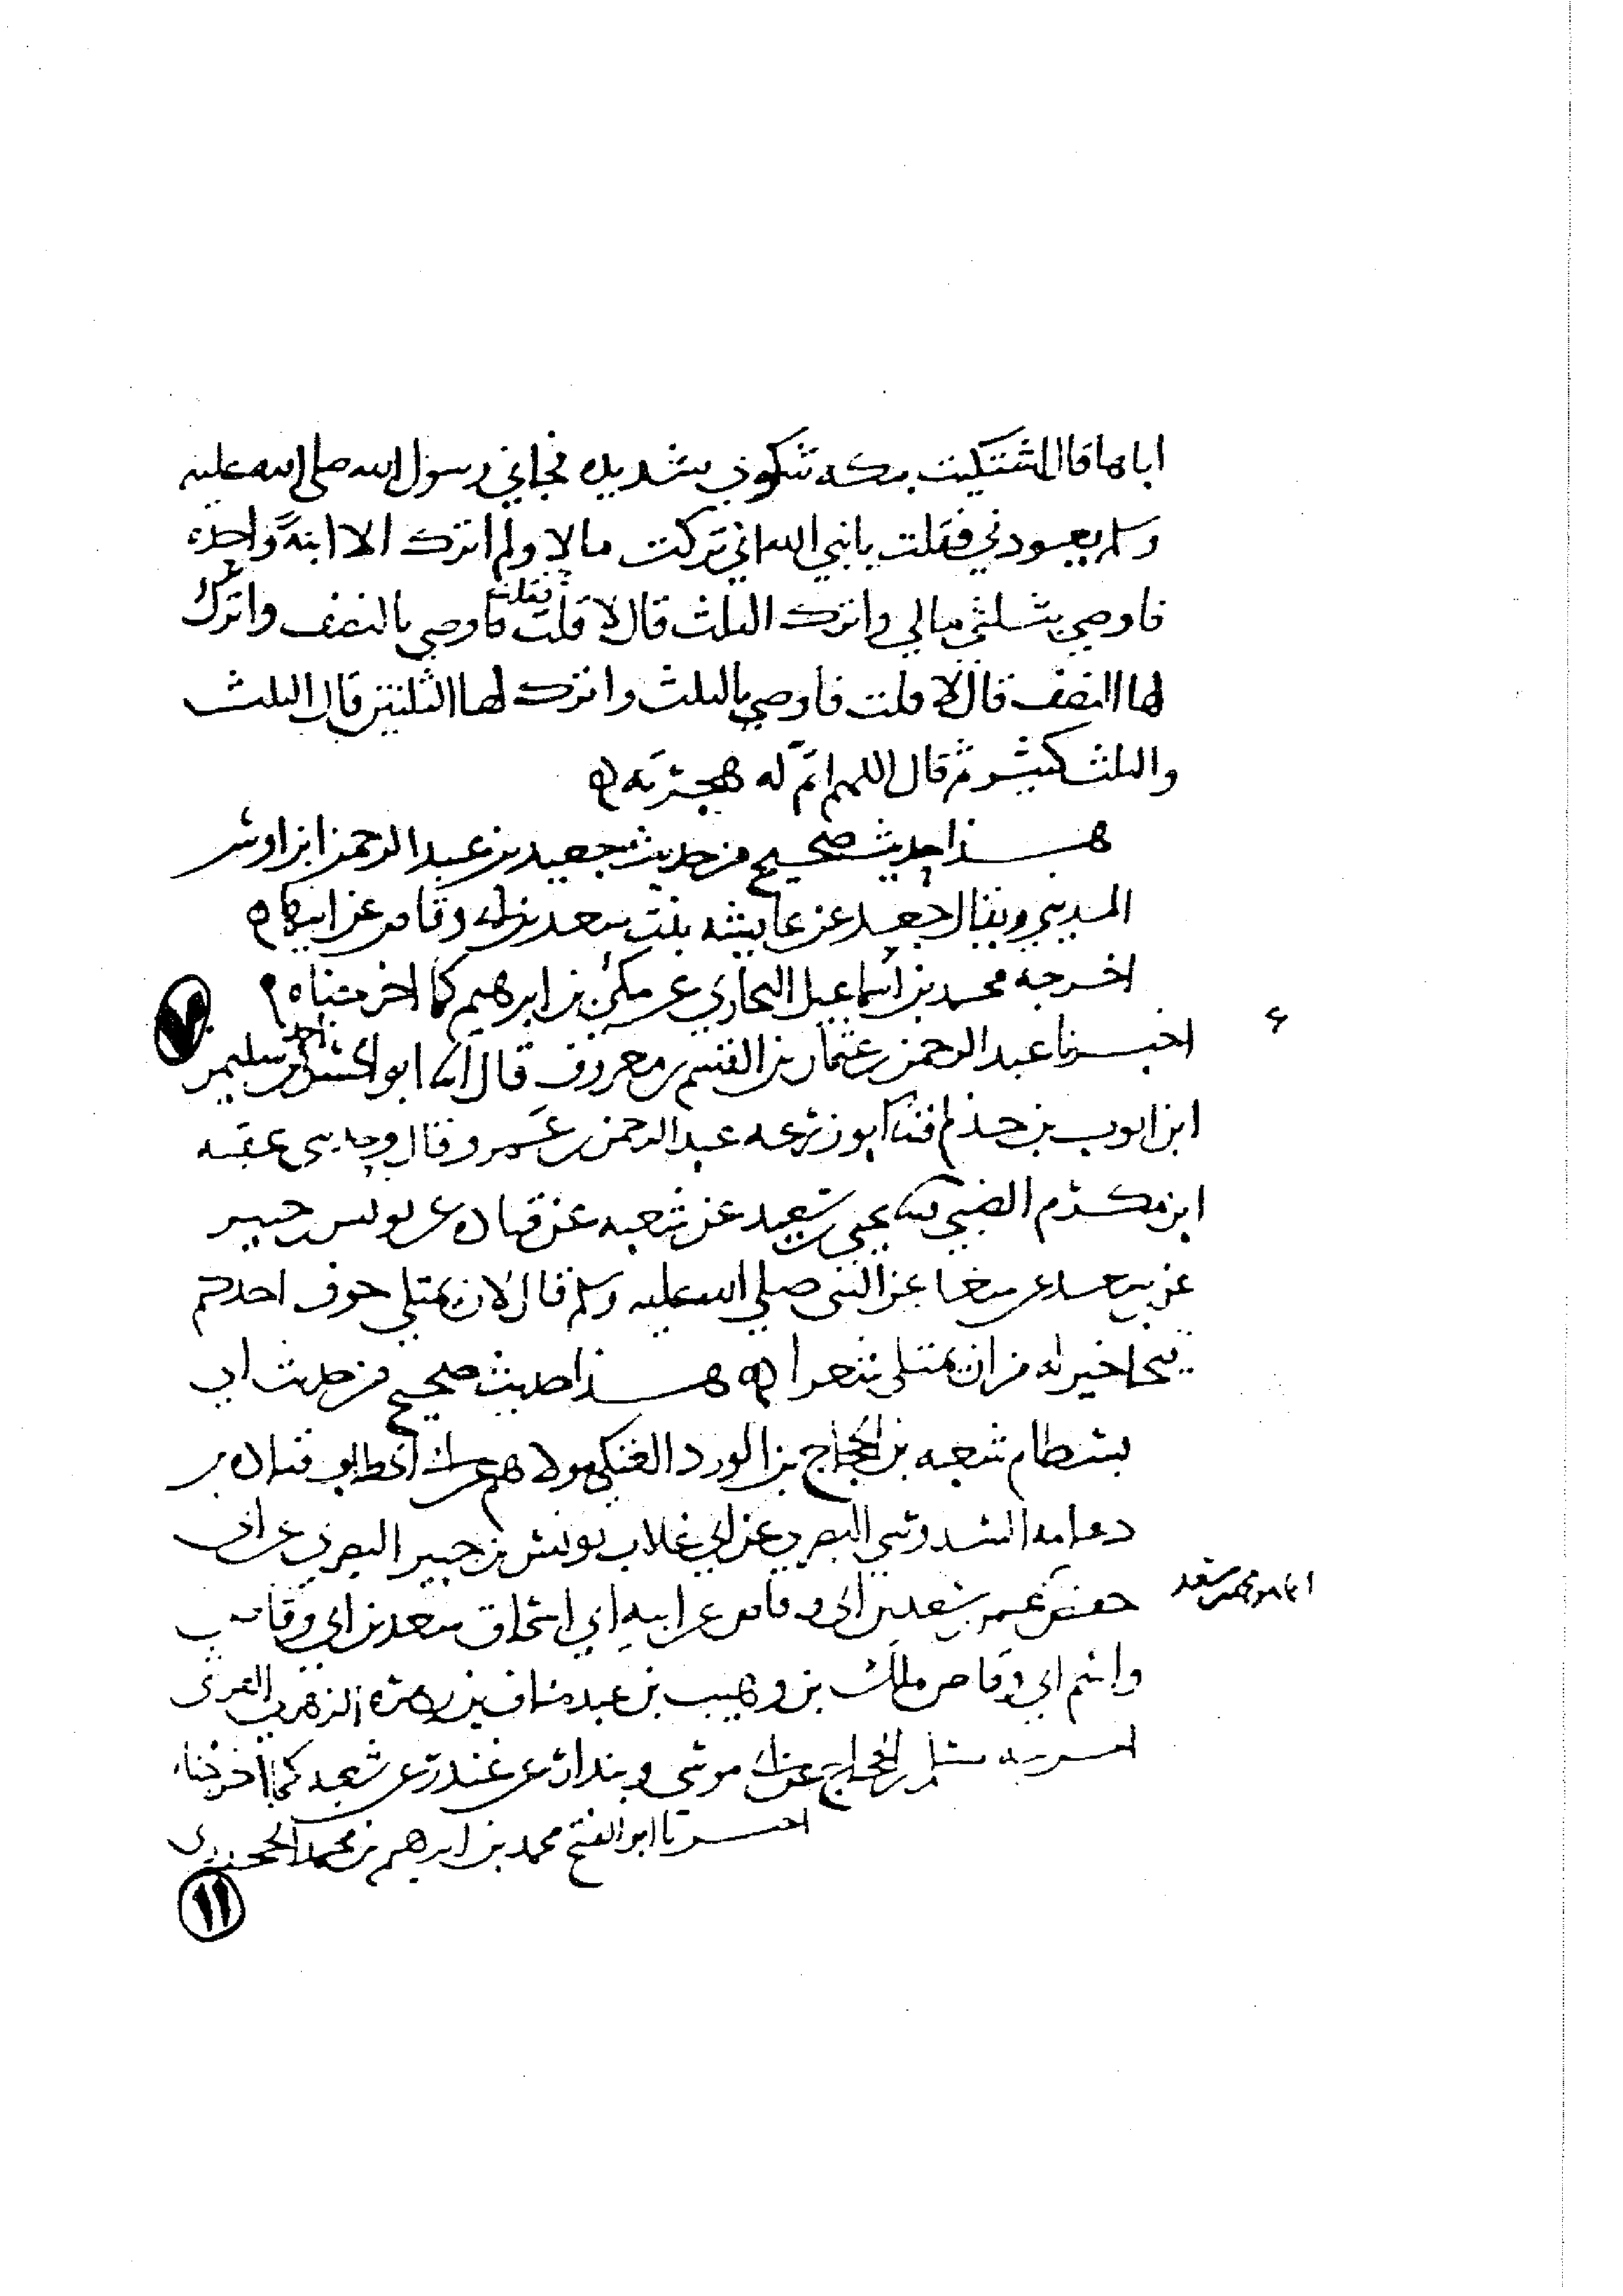 اباها قال اشتكيت بمكه شكوى شديده فجاني رسول الله صلى الله عليه
وسلم يعودني فقلت يا نبي الله اني تركت مالا ولم اترك الا ابنةً واحده
فاوصي بثلثي مالي واترك الثلث قال لا قلت فاوصي بالنصف واترك
فقلت
لها النصف قال لا قلت فاوصي بالثلث واترك لها الثلثين قال الثلث
والثلث كثير ثم قال اللهم اتم له هجرته
هذا حديث صحيح من حديث جعيد بن عبد الرحمن ابن اوس
المديني ويقال جعد عن عايشه بنت سعد بن ابي وقاص عن ابيها
اخرجه محمد بن اسماعيل البخاري عن مكي بن ابرهيم كما اخرجناه
٧
اخبرنا عبد الرحمن بن عثمان بن القسم بن معروف قال انا ابو الحسن احمد بن سليمن
ابن ايوب بن حذلم ثنا ابو زرعه عبد الرحمن بن عمرو قال وحدثني عقبه
ابن مكرم الضبي ثنا يحيى بن سعيد عن شعبه عن قتاده عن يونس بن جبير
عن بن سعد عن سعد عن النبي صلى الله عليه وسلم قال لان يمتلي جوف احدكم
قيحا خير له من ان يمتلي شعرا هذا حديث صحيح من حديث ابي
بسطام شعبه بن الحجاج بن الورد العتكي مولاهم عن ابي الخطاب قتاده بن
دعامه السدوسي البصري عن ابي غلاب يونس بن جبير البصري عن ابي
حفص عمر بن سعد بن ابي وقاص عن ابيه ابي اسحاق سعد بن ابي وقاص
انما هو محمد بن سعد
واسم ابي وقاص ملك بن وهيب بن عبد مناف بن زهره الزهري القرشي
اخرجه مسلم بن الحجاج عن ابن موسى وبندار عن غندر عن شعبه كما اخرجناه
اخبرنا ابو الفتح محمد بن ابرهيم بن محمد الجحدري
١١